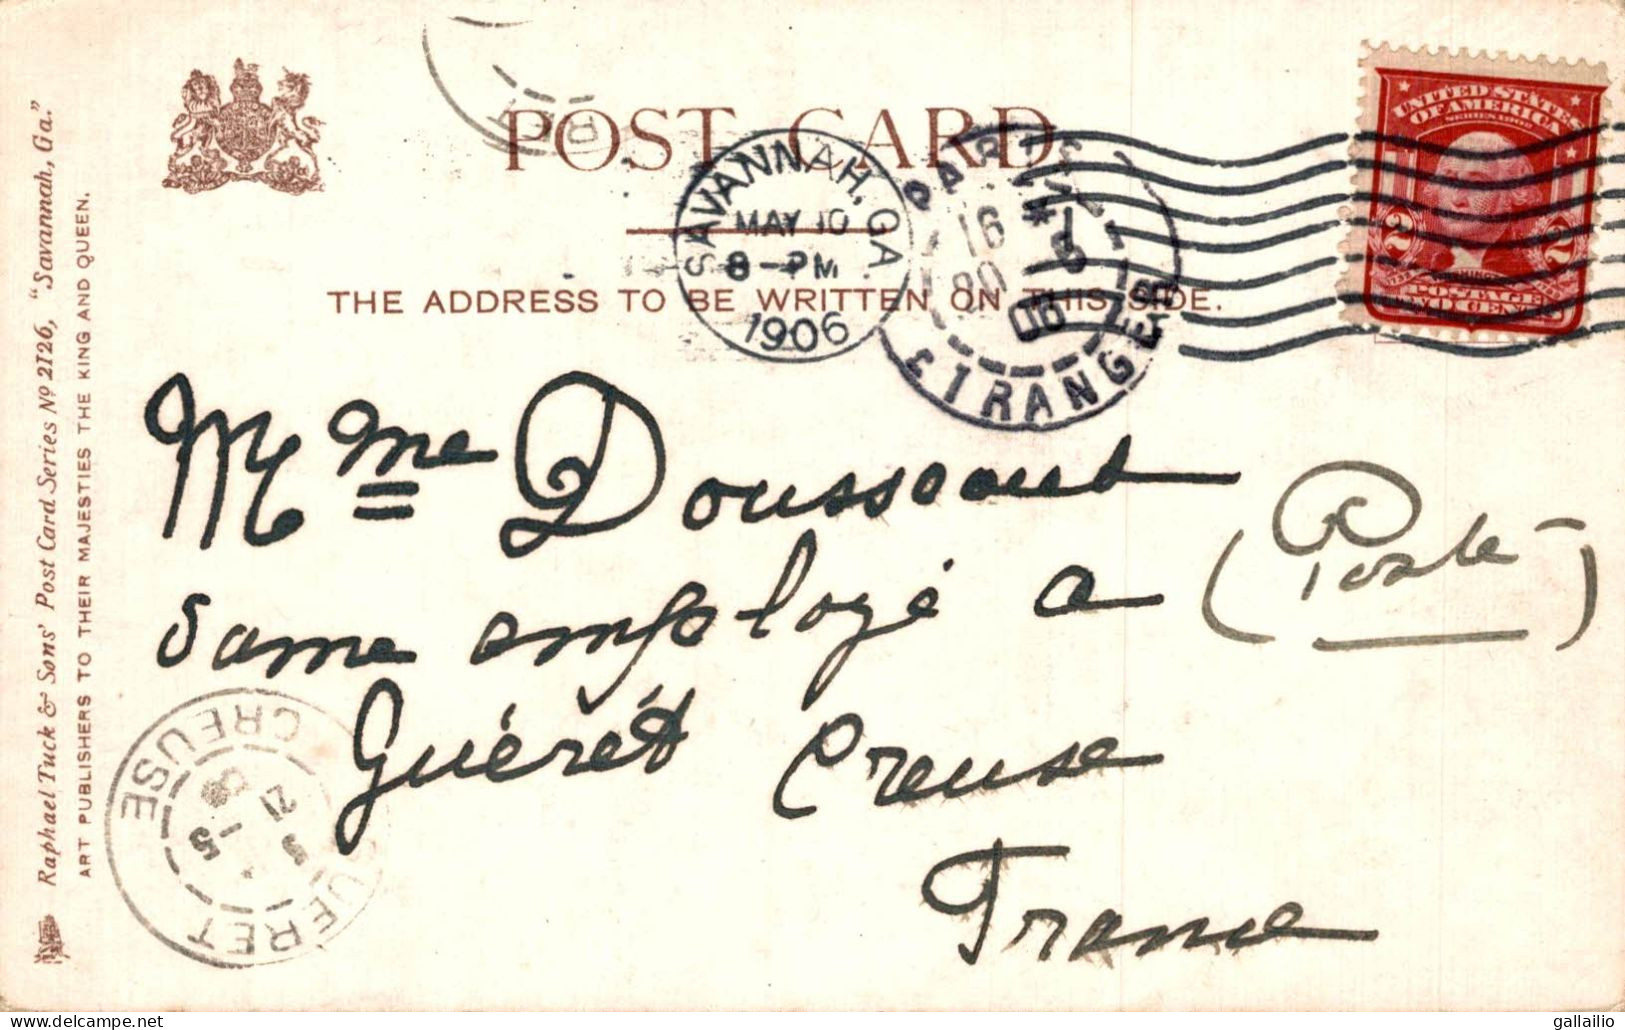 POST CARD
THE ADDRESS TO BE WRITTEN ON THIS SIDE.
Raphael Tuck & Sons' Post Card Series Nº 2126, "Savannah, Ga."
ART PUBLISHERS TO THEIR MAJESTIES THE KING AND QUEEN.
SAVANNAH, GA
MAY 10
8-PM
1906
PARIS
16
ETRANGER
UNITED STATES
OF AMERICA
SERIES 1902
2 2
POSTAGE
TWO CENTS
Mme Doussaut
Dame employé a (Poste)
Guérét Creuse
France
GUERET
CREUSE
21
5
gallailio